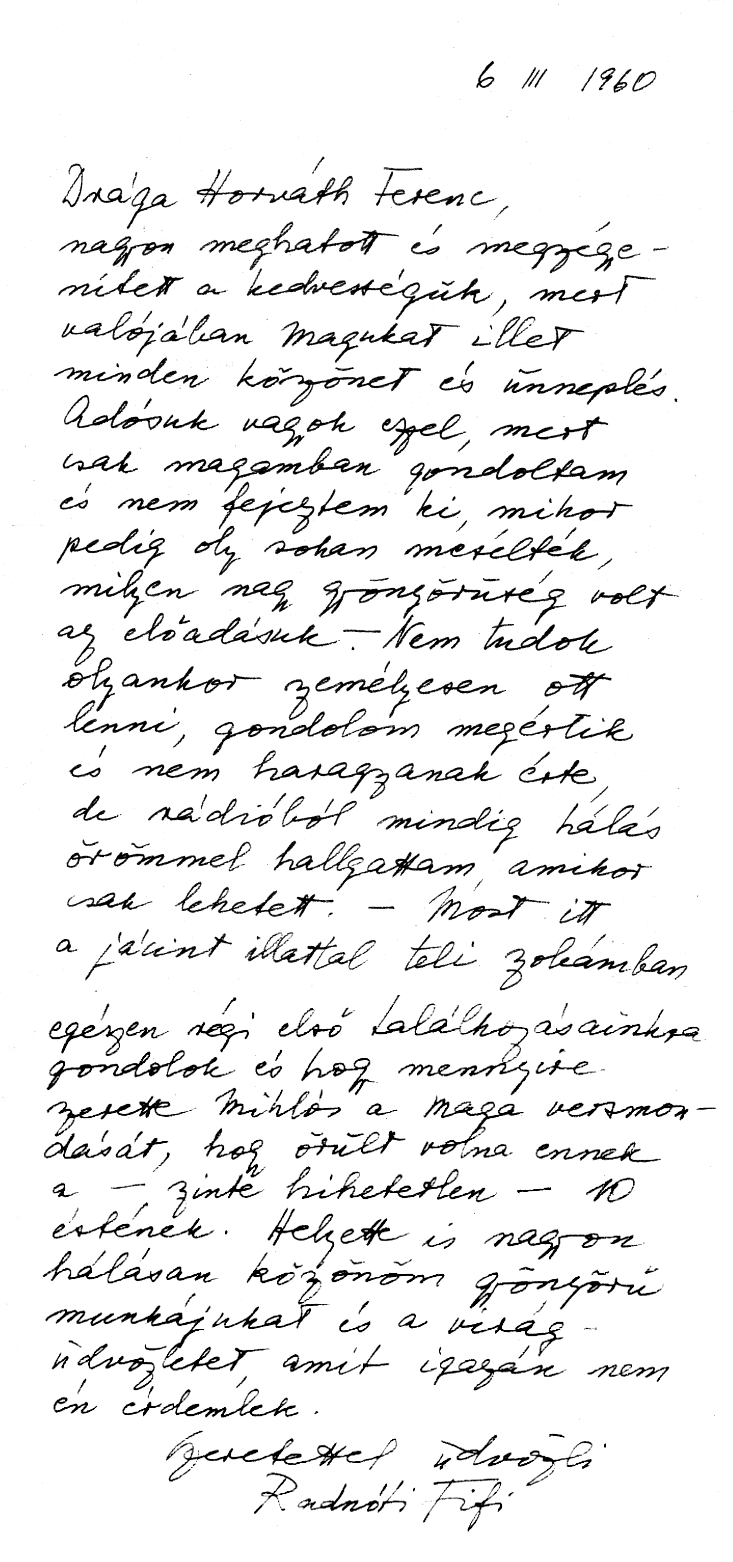 6 III 1960
Drága Horváth Ferenc,
nagyon meghatott és megszégye-
nített a kedvességük, mert
valójában Magukat illet
minden köszönet és ünneplés.
Adósuk vagyok ezzel, mert
csak magamban gondoltam
és nem fejeztem ki, mikor
pedig oly sokan mesélték,
milyen nagy gyöngyörűség volt
az előadásuk. — Nem tudok
olyankor személyesen ott
lenni, gondolom megértik
és nem haragszanak érte,
de rádióból mindig hálás
örömmel hallgattam, amikor
csak lehetett. — Most itt
a jácint illattal teli szobámban
egészen régi első találkozásainkra
gondolok és hogy mennyire
szerette Miklós a Maga versmon-
dását, hogy örült volna ennek
a — szinte hihetetlen — 10
estének. Helyette is nagyon
hálásan köszönöm gyöngyörű
munkájukat és a virág-
üdvözletet, amit igazán nem
én érdemlek.
Szeretettel üdvözli
Radnóti Fifi